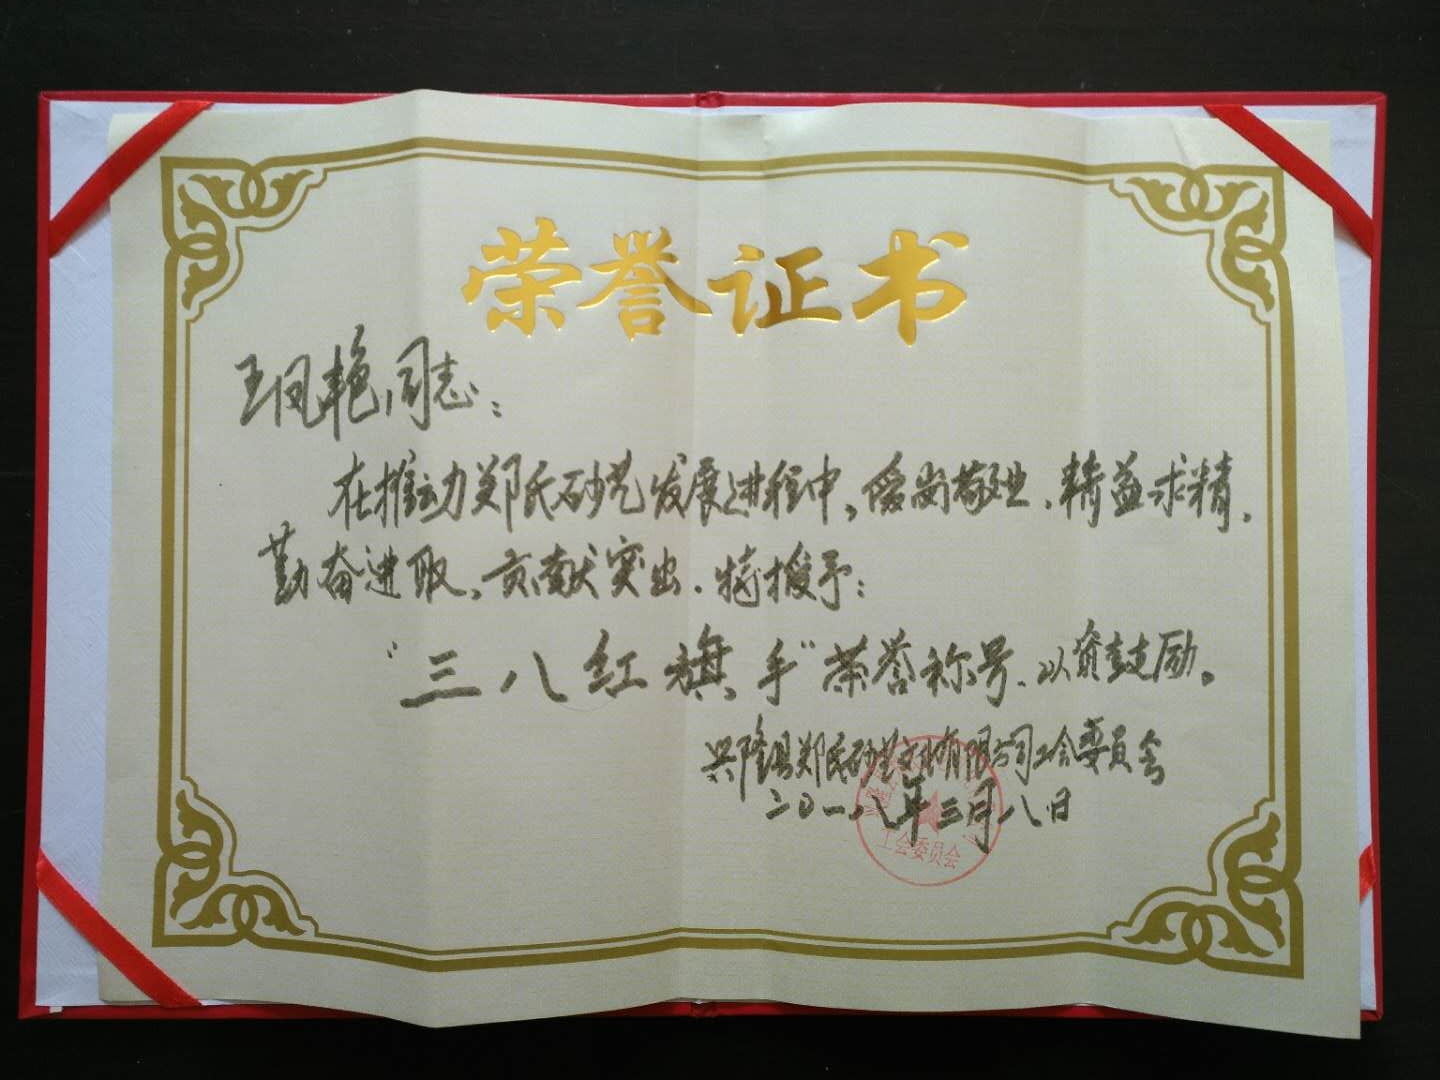 荣誉证书
王凤艳同志：
在推动郑氏砂艺发展进程中，爱岗敬业、精益求精、
勤奋进取、贡献突出，特授予：
“三八红旗手”荣誉称号，以资鼓励。
兴隆县郑氏砂艺有限公司工会委员会
二〇一八年三月八日
工会委员会